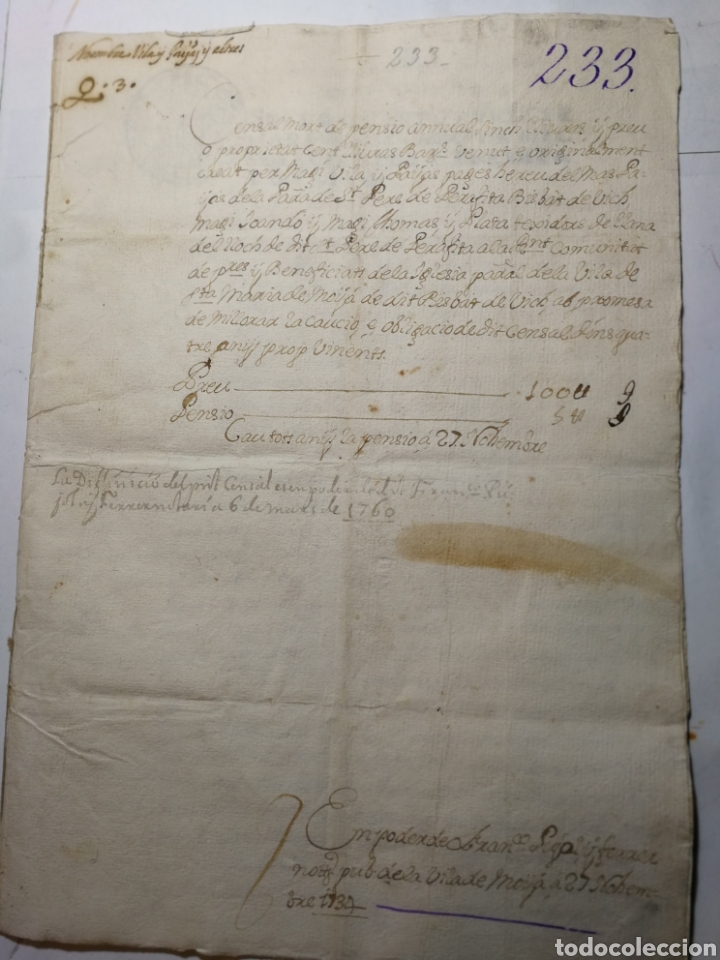 Nombre Vila y Paÿas y altres
233.
233.
Q. 3.
Censal mort de pensio annual sinch lliuras ÿ preu
o proprietat Cent lliuras Bar.s venut e originalment
creat per Magi Vila ÿ Paÿas pages hereu del Mas Pa-
ÿas de la Par.a de St Pere de Perafita Bisbat de Vich
Magi Joando ÿ Magi Thomas ÿ Plata texidors de llana
del lloch de dit St Pere de Perafita a la Comunitat
de pres ÿ Beneficiats de la Iglesia paral de la Vila de
Sta Maria de Moÿá de dit Bisbat de Vich, ab promesa
de millorar la caució e obligacio de dit Censal dins qua-
tre anÿs prop vinents.
Preu 100 ll
Pensio 5 ll
Cau tots anÿs la pensio á 27 Nohembre
La Diffinició del censal es en poder de
ÿ Ferrer notari a 6 de mars de 1760
En poder de Fran.co ÿ Ferrer
nott. pub. de la Vila de Moÿá á 27 Nohem-
bre 1737
todocoleccion.net